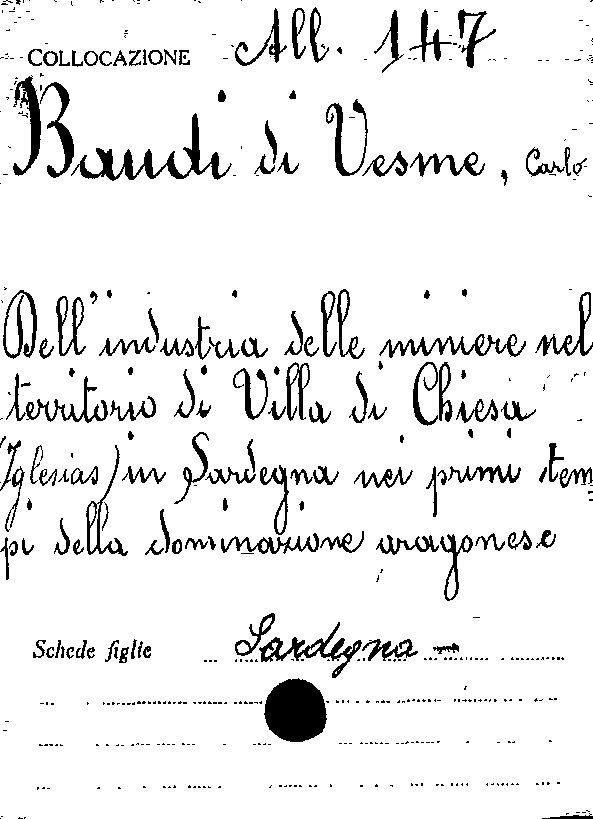 COLLOCAZIONE All. 147
Baudi di Vesme, Carlo
Dell'industria delle miniere nel
territorio di Villa di Chiesa
(Iglesias) in Sardegna nei primi tem
pi della dominazione aragonese
Schede figlie Sardegna -